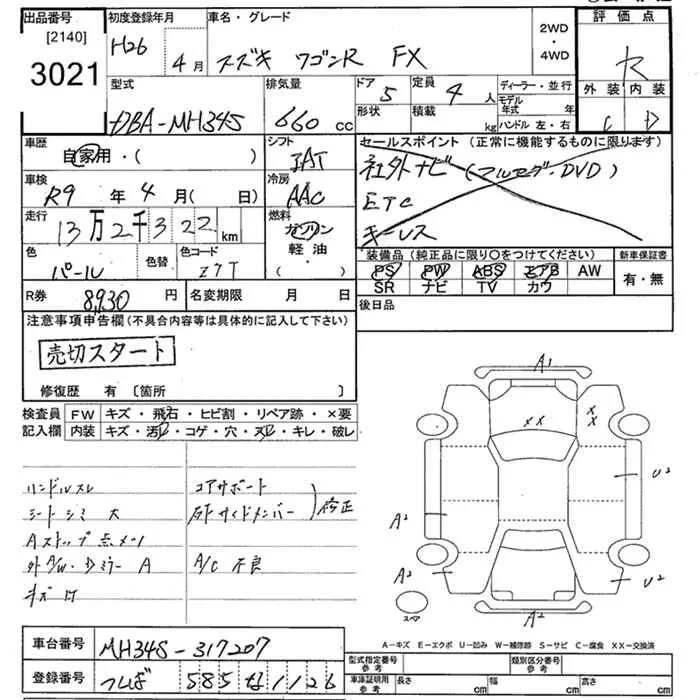 出品番号 初度登録年月 車名・グレード 2WD・4WD 評価点
[2140]
3021 H26 4月 スズキ ワゴンR FX R
型式 排気量 ドア 定員 ディーラー・並行 外装 内装
DBA-MH34S 660cc 5 4人 モデル年式 年 C D
形状 積載 kg ハンドル 左・右
車歴 自家用・( ) シフト IAT セールスポイント (正常に機能するものに限ります)
車検 R9年4月( 日) 冷房 AAC 社外ナビ(フルセグ・DVD)
走行 13万2千322km 燃料 ガソリン 軽油・( ) ETC
キーレス
色 パール 色替 色コード Z7T
装備品 (純正品に限り○をつけてください) 新車保証書
PS PW ABS エアB AW 有・無
SR ナビ TV カワ
R券 8,930円 名変期限 月 日 後日品
注意事項申告欄(不具合内容等は具体的に記入して下さい)
売切スタート
修復歴 有 [箇所 ]
検査員 FW キズ・飛石・ヒビ割・リペア跡・×要
記入欄 内装 キズ・汚レ・コゲ・穴・スレ・キレ・破レ
ハンドルスレ コアサポート
シートシミ大 右Fサイドメンバー 修正
Aストップ点メツ
A/C 不良
A1
XX
XX
U2
A2
A2
U2
スペア
A2
A-キズ E-エクボ U-凹み W-補修跡 S-サビ C-腐食 XX-交換済
車台番号 MH34S-317207
登録番号 つくば 585 な 1126
型式指定番号 参考 類別区分番号 参考
車庫証明用 参考 長さ cm 幅 cm 高さ cm